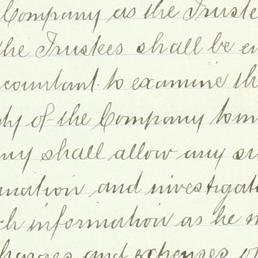 Company as the Truste
the Trustees shall be en
ccountant to examine th
ty of the Company to m
ny shall allow any su
mation and investigat
ch information as he m
harges and expenses of